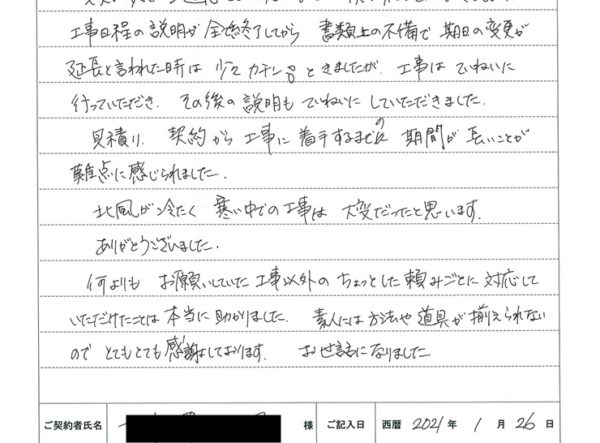 工事日程の説明が全て終了してから 書類上の不備で期日の変更が
延長と言われた時は 少々カチン。ときましたが、工事はていねいに
行っていただき、その後の説明もていねいにしていただきました。
見積り、契約から工事に着手するまでの期間が長いことが
難点に感じられました。
北風が冷たく 寒い中での工事は 大変だったと思います。
ありがとうございました。
何よりも お願いしていた工事以外のちょっとした頼みごとに対応して
いただけたことは本当に助かりました。 素人には方法や道具が揃えられない
ので とてもとても感謝しております。 お世話になりました
ご契約者氏名 様 ご記入日 西暦 2021 年 1 月 26 日